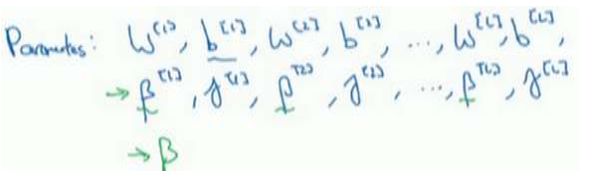 Parameters: W^[1], b^[1], W^[2], b^[2], ..., W^[L], b^[L],
→ β^[1], γ^[1], β^[2], γ^[2], ..., β^[L], γ^[L]
→ β